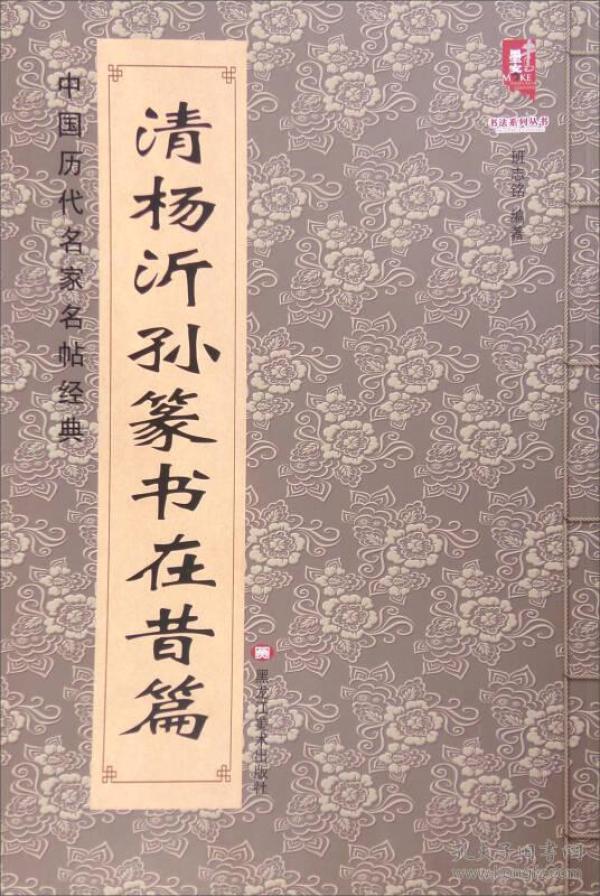 中国历代名家名帖经典
清杨沂孙篆书在昔篇
墨客
MOKE
书法系列丛书
班志铭 编著
黑龙江美术出版社
孔夫子旧书网